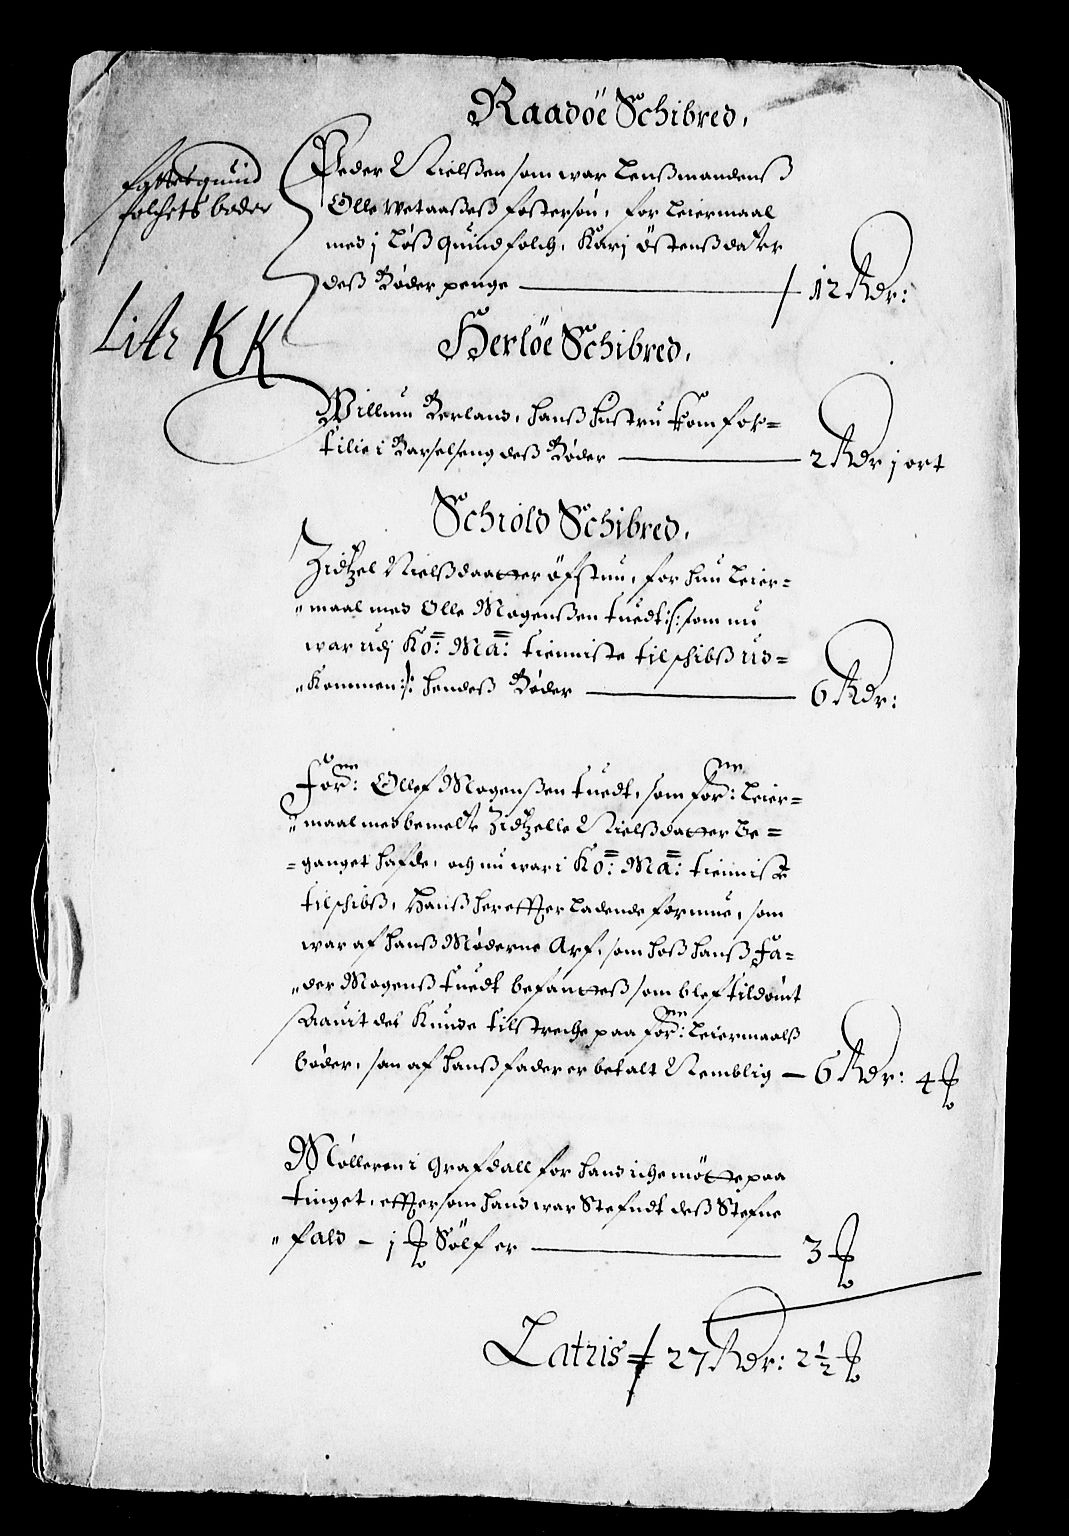 Raadöe Schibred,
fattet quind
folchets bøder
Peder Nielßen som war Lenßmandenß
Olle Wetaaßeß fostersøn, for Leiermaal
med j Løß quindfolch, Karj Östenßdatter
deß Bøder penge — 12 Rdr:
Litr KK
Herlöe Schibred,
Willum Berland, hanß hustru kom for-
tilie i Barselseng deß Bøder — 2 Rdr j ort
Schiold Schibred,
Zidtzel Nielßdaatter öfstun, for hun Leier-
maal med Olle Mogenßen tuedt :/: som nu
war udj Ko: Ma: tienniste til schibß ud-
kommen :/: hendeß Bøder — 6 Rdr:
Forne: Ollef Mogenßen tuedt, som forne: Leier-
maal med bemelte Zidtzelle Nielßdatter be-
ganget hafde, och nu war i Ko: Ma: tienniste
til schibß, hanß her effter ladende formue, som
war af hanß Møderne Arf, som hoß hanß Fa-
der Mogenß tuedt befanteß som blef tildömt
saauit det kunde tilstreche paa forne: Leiermaalß
bøder, som af hanß fader er betalt Nemblig — 6 Rdr: 4 ℔
Mølleren i Grafdall for hand iche mötte paa
tinget, effter som hand war Stefndt deß Stefne
fald — j ℔ Sölf er — 3 ℔
Latris 27 Rdr: 2½ ℔